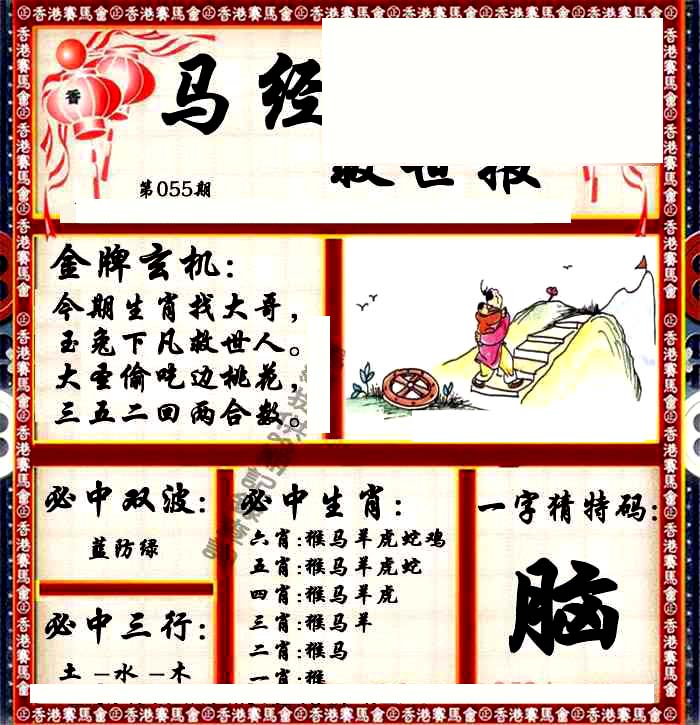 香港賽馬會
马经
救世报
第055期
香
金牌玄机:
今期生肖找大哥，
玉兔下凡救世人。
大圣偷吃边桃花，
三五二回两合数。
必中双波:
蓝防绿
必中三行:
土–水–木
必中生肖:
六肖:猴马羊虎蛇鸡
五肖:猴马羊虎蛇
四肖:猴马羊虎
三肖:猴马羊
二肖:猴马
一肖:猴
一字猜特码:
脑